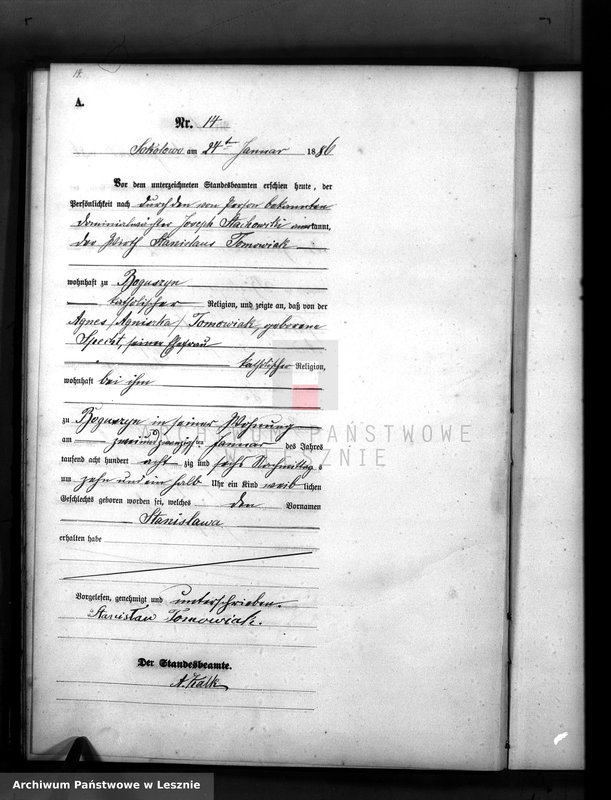 14.
A.
Nr. 14
Sokolowo am 24t Januar 1886
Vor dem unterzeichneten Standesbeamten erschien heute, der
Persönlichkeit nach durch den von Person bekannten
Dominialwächter Joseph Stachowski anerkannt,
der Wirth Stanislaus Tomowiak
wohnhaft zu Boguszyn
katholischer Religion, und zeigte an, daß von der
Agnes /Agniszka/ Tomowiak, geborenen
Specht, seiner Ehefrau
katholischer Religion,
wohnhaft bei ihm
zu Boguszyn in seiner Wohnung
am zweiundzwanzigsten Januar des Jahres
tausend acht hundert achtzig und sechs Nachmittags
um zehn und ein halb Uhr ein Kind weiblichen
Geschlechts geboren worden sei, welches den Vornamen
Stanislawa
erhalten habe
Vorgelesen, genehmigt und unterschrieben.
Stanisław Tomowiak.
Der Standesbeamte.
A. Kalk
ARCHIWUM PAŃSTWOWE
W LESZNIE
Archiwum Państwowe w Lesznie